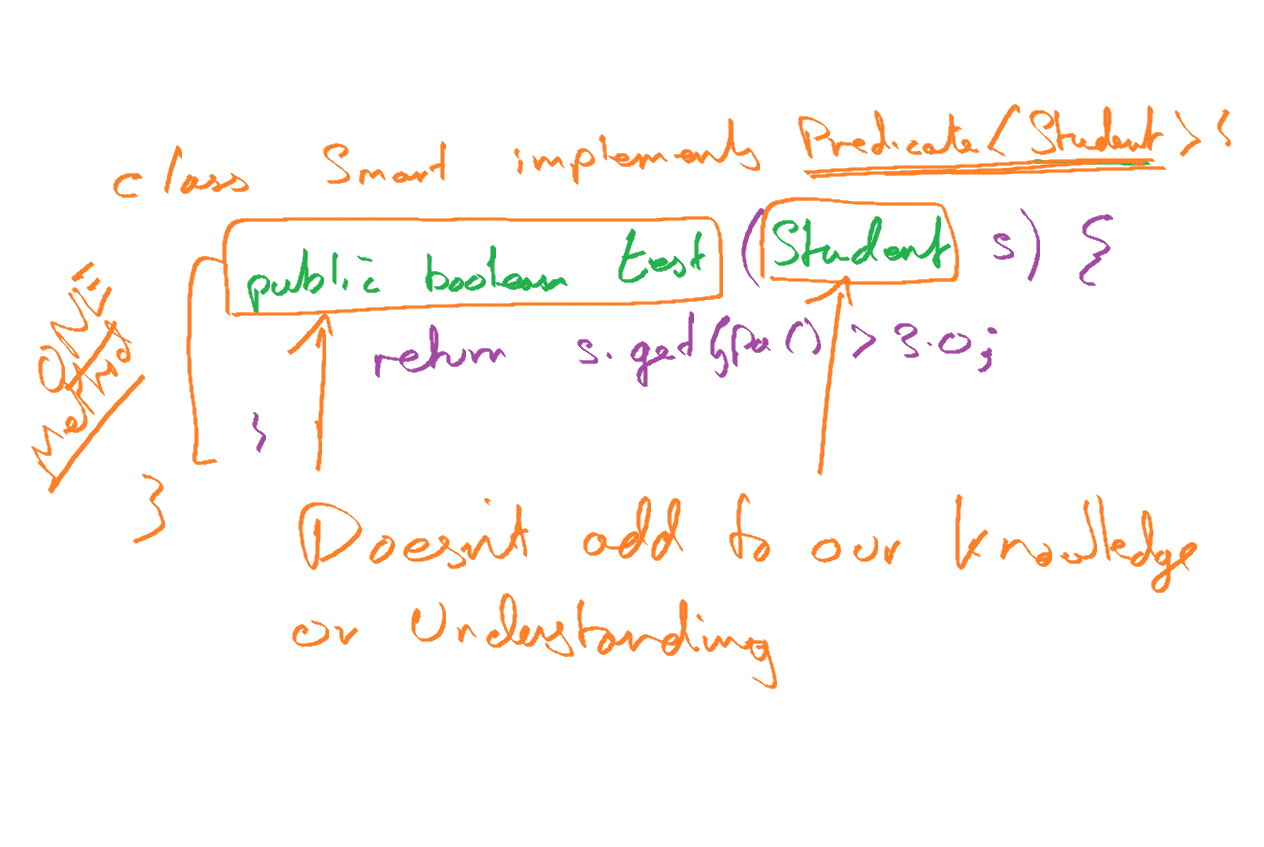 class Smart implements Predicate<Student> {
public boolean test (Student s) {
return s.getGpa() > 3.0;
}
}
ONE
Method
Doesn't add to our knowledge
or Understanding